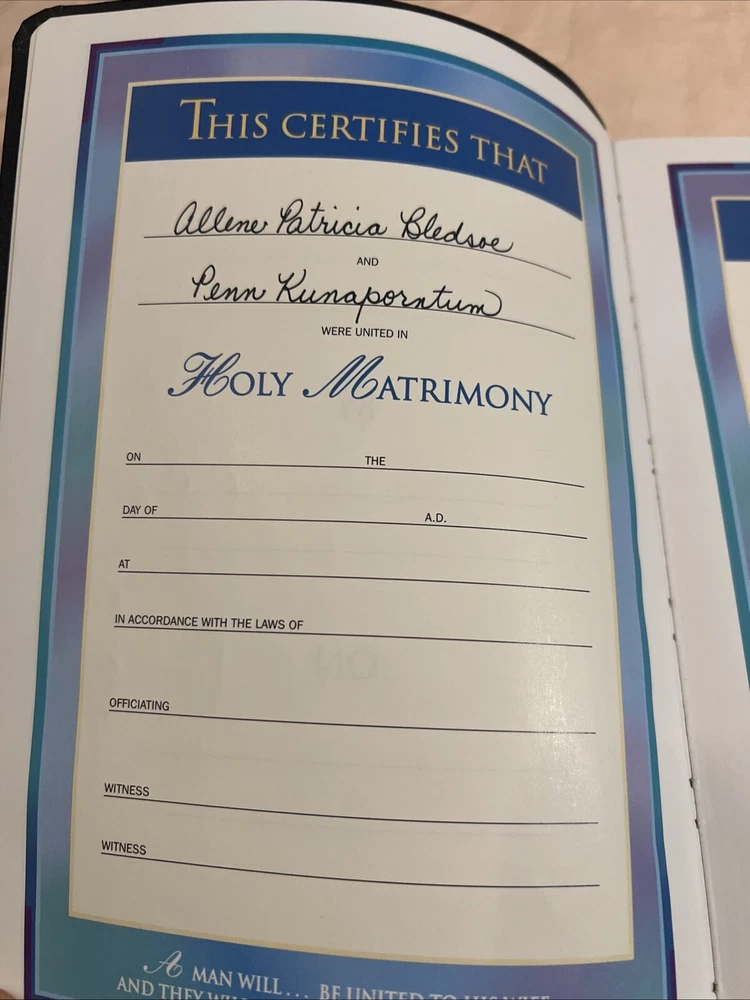 THIS CERTIFIES THAT
Allene Patricia Bledsoe
AND
Penn Kunaporntum
WERE UNITED IN
HOLY MATRIMONY
ON THE
DAY OF A.D.
AT
IN ACCORDANCE WITH THE LAWS OF
OFFICIATING
WITNESS
WITNESS
A MAN WILL... BE UNITED TO HIS WIFE
AND THEY